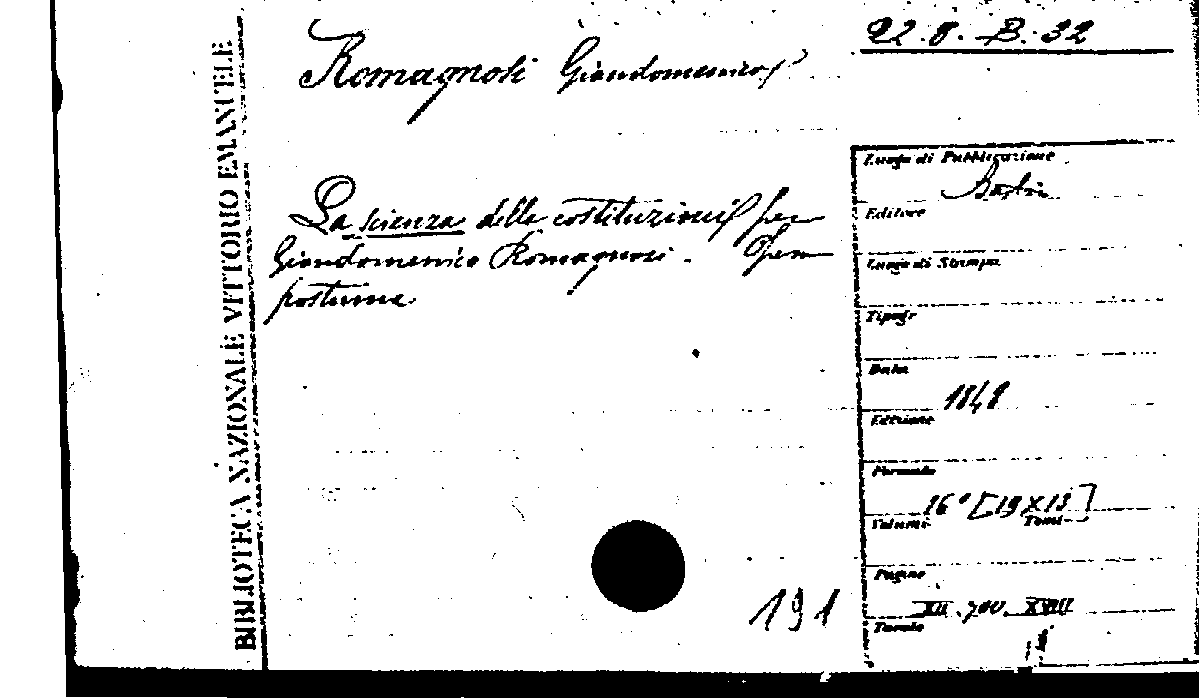 BIBLIOTECA NAZIONALE VITTORIO EMANUELE
Romagnosi Giandomenico
22.8.B.32
La scienza delle costituzioni per
Giandomenico Romagnosi. Opera
postuma.
Luogo di Pubblicazione
Editore
Luogo di Stampa
Tipogr
Data
1848
Edizione
Formato
16° [19 X 13]
Volumi Tomi
Pagine
XII. 700. XVIII
Tavole
191